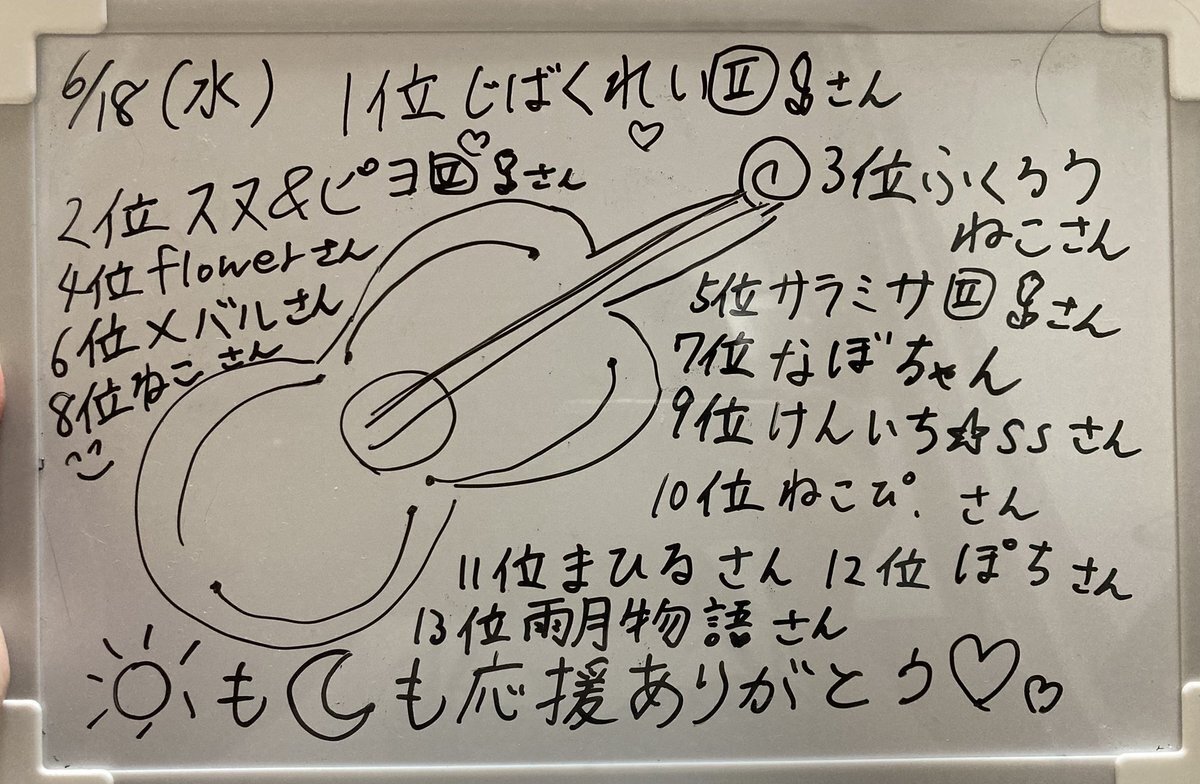 6/18(水) 1位 じばくれいⅡさん
2位 スヌ&ピヨⅡさん
3位 ふくろう
ねこさん
4位 flowerさん
5位 サラミサⅡさん
6位 メバルさん
7位 なぼちゃん
8位 ねこさん
9位 けんいち☆ssさん
10位 ねこぴ. さん
11位 まひるさん 12位 ぽちさん
13位 雨月物語さん
も も応援ありがとう♡♡